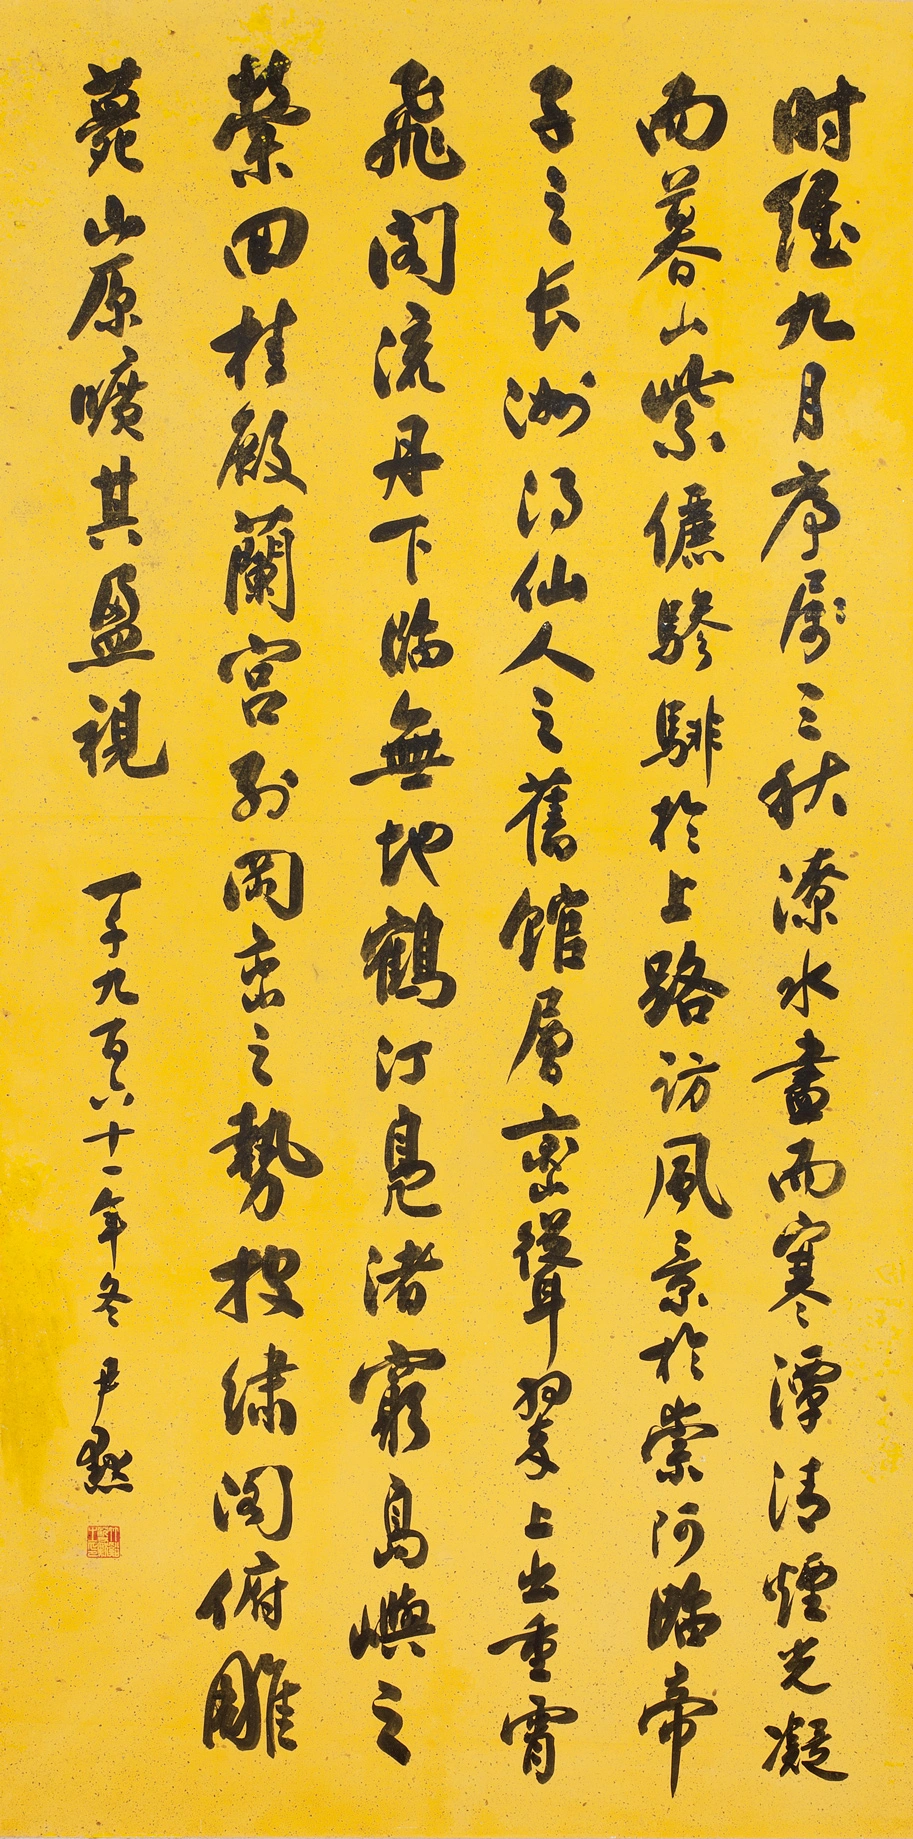 时維九月序属三秋潦水盡而寒潭清煙光凝
而暮山紫儷驂騑於上路访風景於崇阿临帝
子之长洲得仙人之舊館層峦聳翠上出重霄
飛阁流丹下临無地鶴汀鳧渚窮島嶼之
縈回桂殿蘭宫列岡峦之勢披绣阁俯雕
甍山原曠其盈視 一千九百六十一年冬 尹默